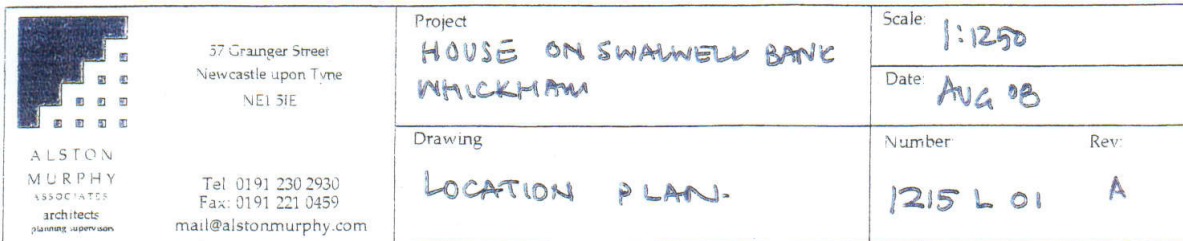 ALSTON
MURPHY
ASSOCIATES
architects
planning supervisors
57 Grainger Street
Newcastle upon Tyne
NE1 5JE
Tel: 0191 230 2930
Fax: 0191 221 0459
mail@alstonmurphy.com
Project
HOUSE ON SWALWELL BANK
WHICKHAM
Drawing
LOCATION PLAN.
Scale: 1:1250
Date: AUG 08
Number: Rev:
1215 L 01 A